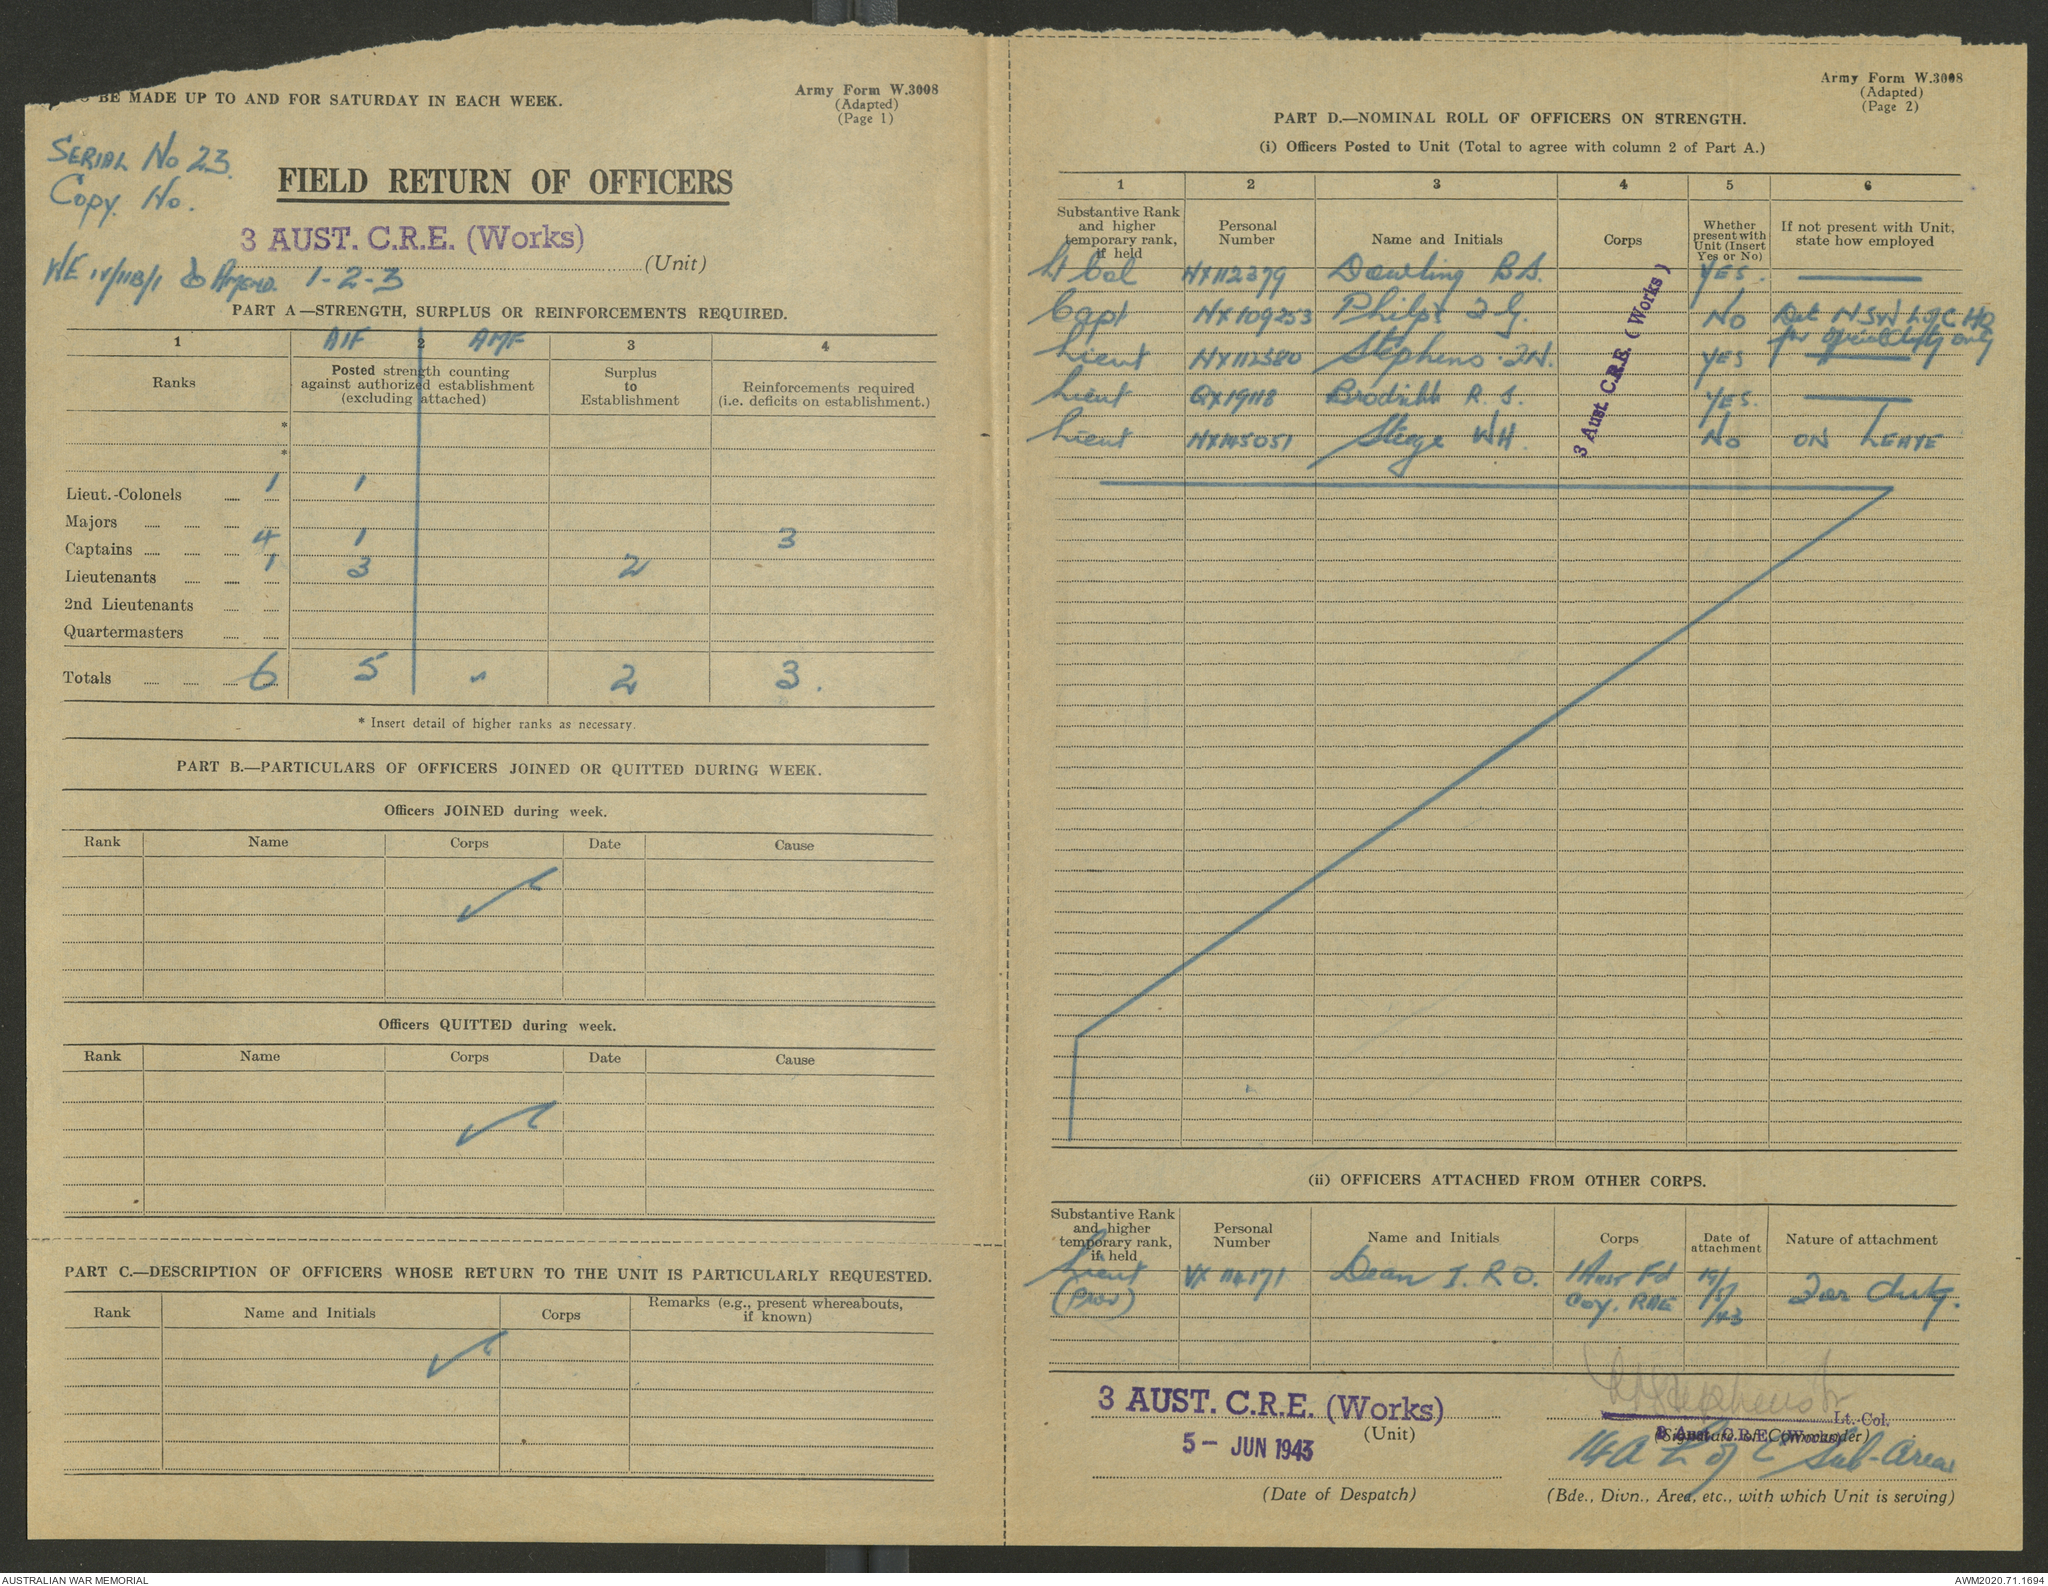 BE MADE UP TO AND FOR SATURDAY IN EACH WEEK.
Army Form W.3008
(Adapted)
(Page 1)
SERIAL No 23.
Copy. No.
FIELD RETURN OF OFFICERS
3 AUST. C.R.E. (Works)
(Unit)
WE IV/11B/1 & Amend. 1-2-3
PART A—STRENGTH, SURPLUS OR REINFORCEMENTS REQUIRED.
1 AIF 2 AMF 3 4
Ranks
Posted strength counting against authorized establishment (excluding attached)
Surplus to Establishment
Reinforcements required (i.e. deficits on establishment.)
*
*
Lieut.-Colonels 1 1
Majors
Captains 4 1 3
Lieutenants 1 3 2
2nd Lieutenants
Quartermasters
Totals 6 5 - 2 3.
* Insert detail of higher ranks as necessary.
PART B.—PARTICULARS OF OFFICERS JOINED OR QUITTED DURING WEEK.
Officers JOINED during week.
Rank Name Corps Date Cause
Officers QUITTED during week.
Rank Name Corps Date Cause
PART C.—DESCRIPTION OF OFFICERS WHOSE RETURN TO THE UNIT IS PARTICULARLY REQUESTED.
Rank Name and Initials Corps Remarks (e.g., present whereabouts, if known)
Army Form W.3008
(Adapted)
(Page 2)
PART D.—NOMINAL ROLL OF OFFICERS ON STRENGTH.
(i) Officers Posted to Unit (Total to agree with column 2 of Part A.)
1 2 3 4 5 6
Substantive Rank and higher temporary rank, if held
Personal Number
Name and Initials
Corps
Whether present with Unit (Insert Yes or No)
If not present with Unit, state how employed
Lt Col NX112379 Dowling B.S. YES.
Capt NX109253 Philps J.G. NO Det NSW L of C HQ
for special duty only
Lieut NX112580 Stephens J.N. YES
Lieut QX19118 R. J. YES.
Lieut NX145051 Steege WH. NO ON LEAVE
3 Aust. C.R.E. (Works)
(ii) OFFICERS ATTACHED FROM OTHER CORPS.
Substantive Rank and higher temporary rank, if held
Personal Number
Name and Initials
Corps
Date of attachment
Nature of attachment
Lieut VX114171 Dean I. R O. 1 Aust Fd 19/5/43 For duty.
(Prov) Coy. RAE
3 AUST. C.R.E. (Works)
(Unit)
5 - JUN 1943
(Date of Despatch)
Lt.-Col.
3 Aust. C.R.E. (Works)
(Signature of Commander)
14A L of C Sub-Area
(Bde., Divn., Area, etc., with which Unit is serving)
AUSTRALIAN WAR MEMORIAL
AWM2020.71.1694